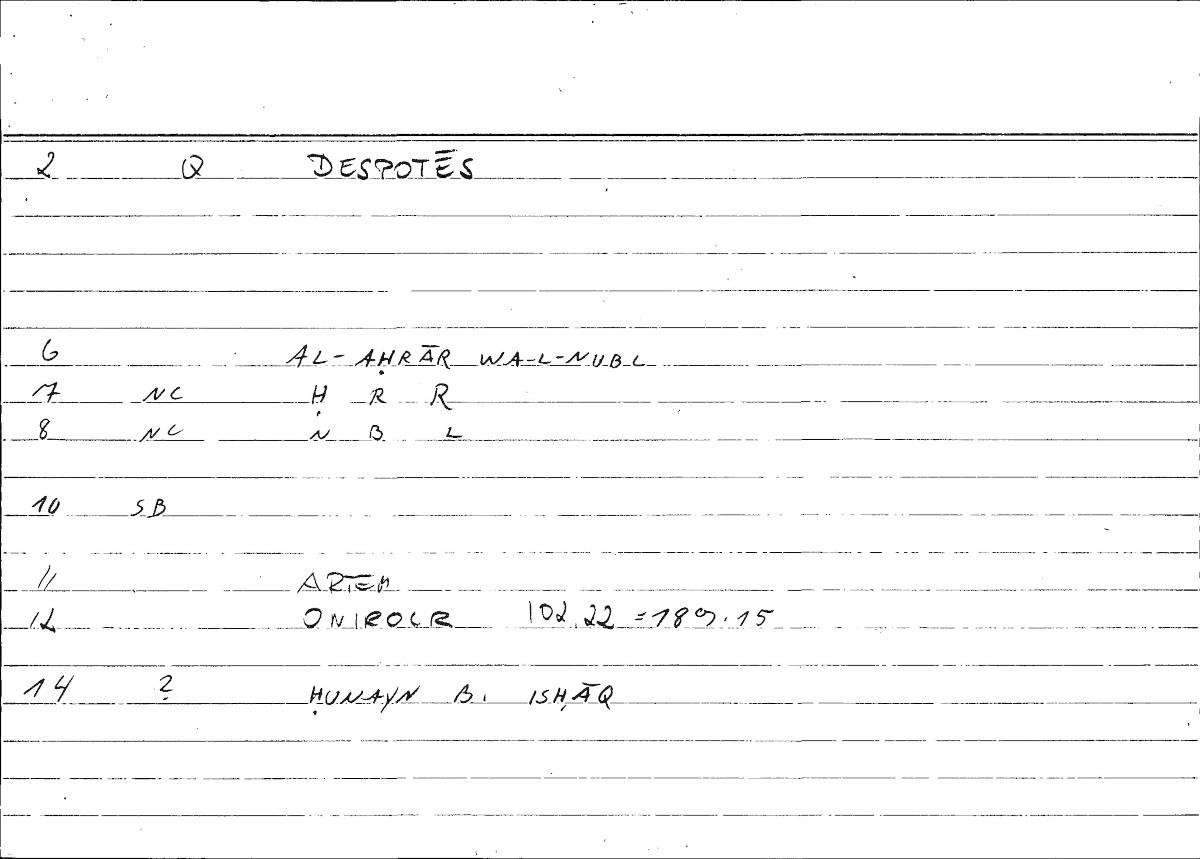 2 Q DESPOTĒS
6 AL-AḤRĀR WA-L-NUBL
7 NC Ḥ R R
8 NC N B L
10 SB
11 ARTEM
12 ONIROCR 102,22 = 189.15
14 ? ḤUNAYN B. ISḤĀQ